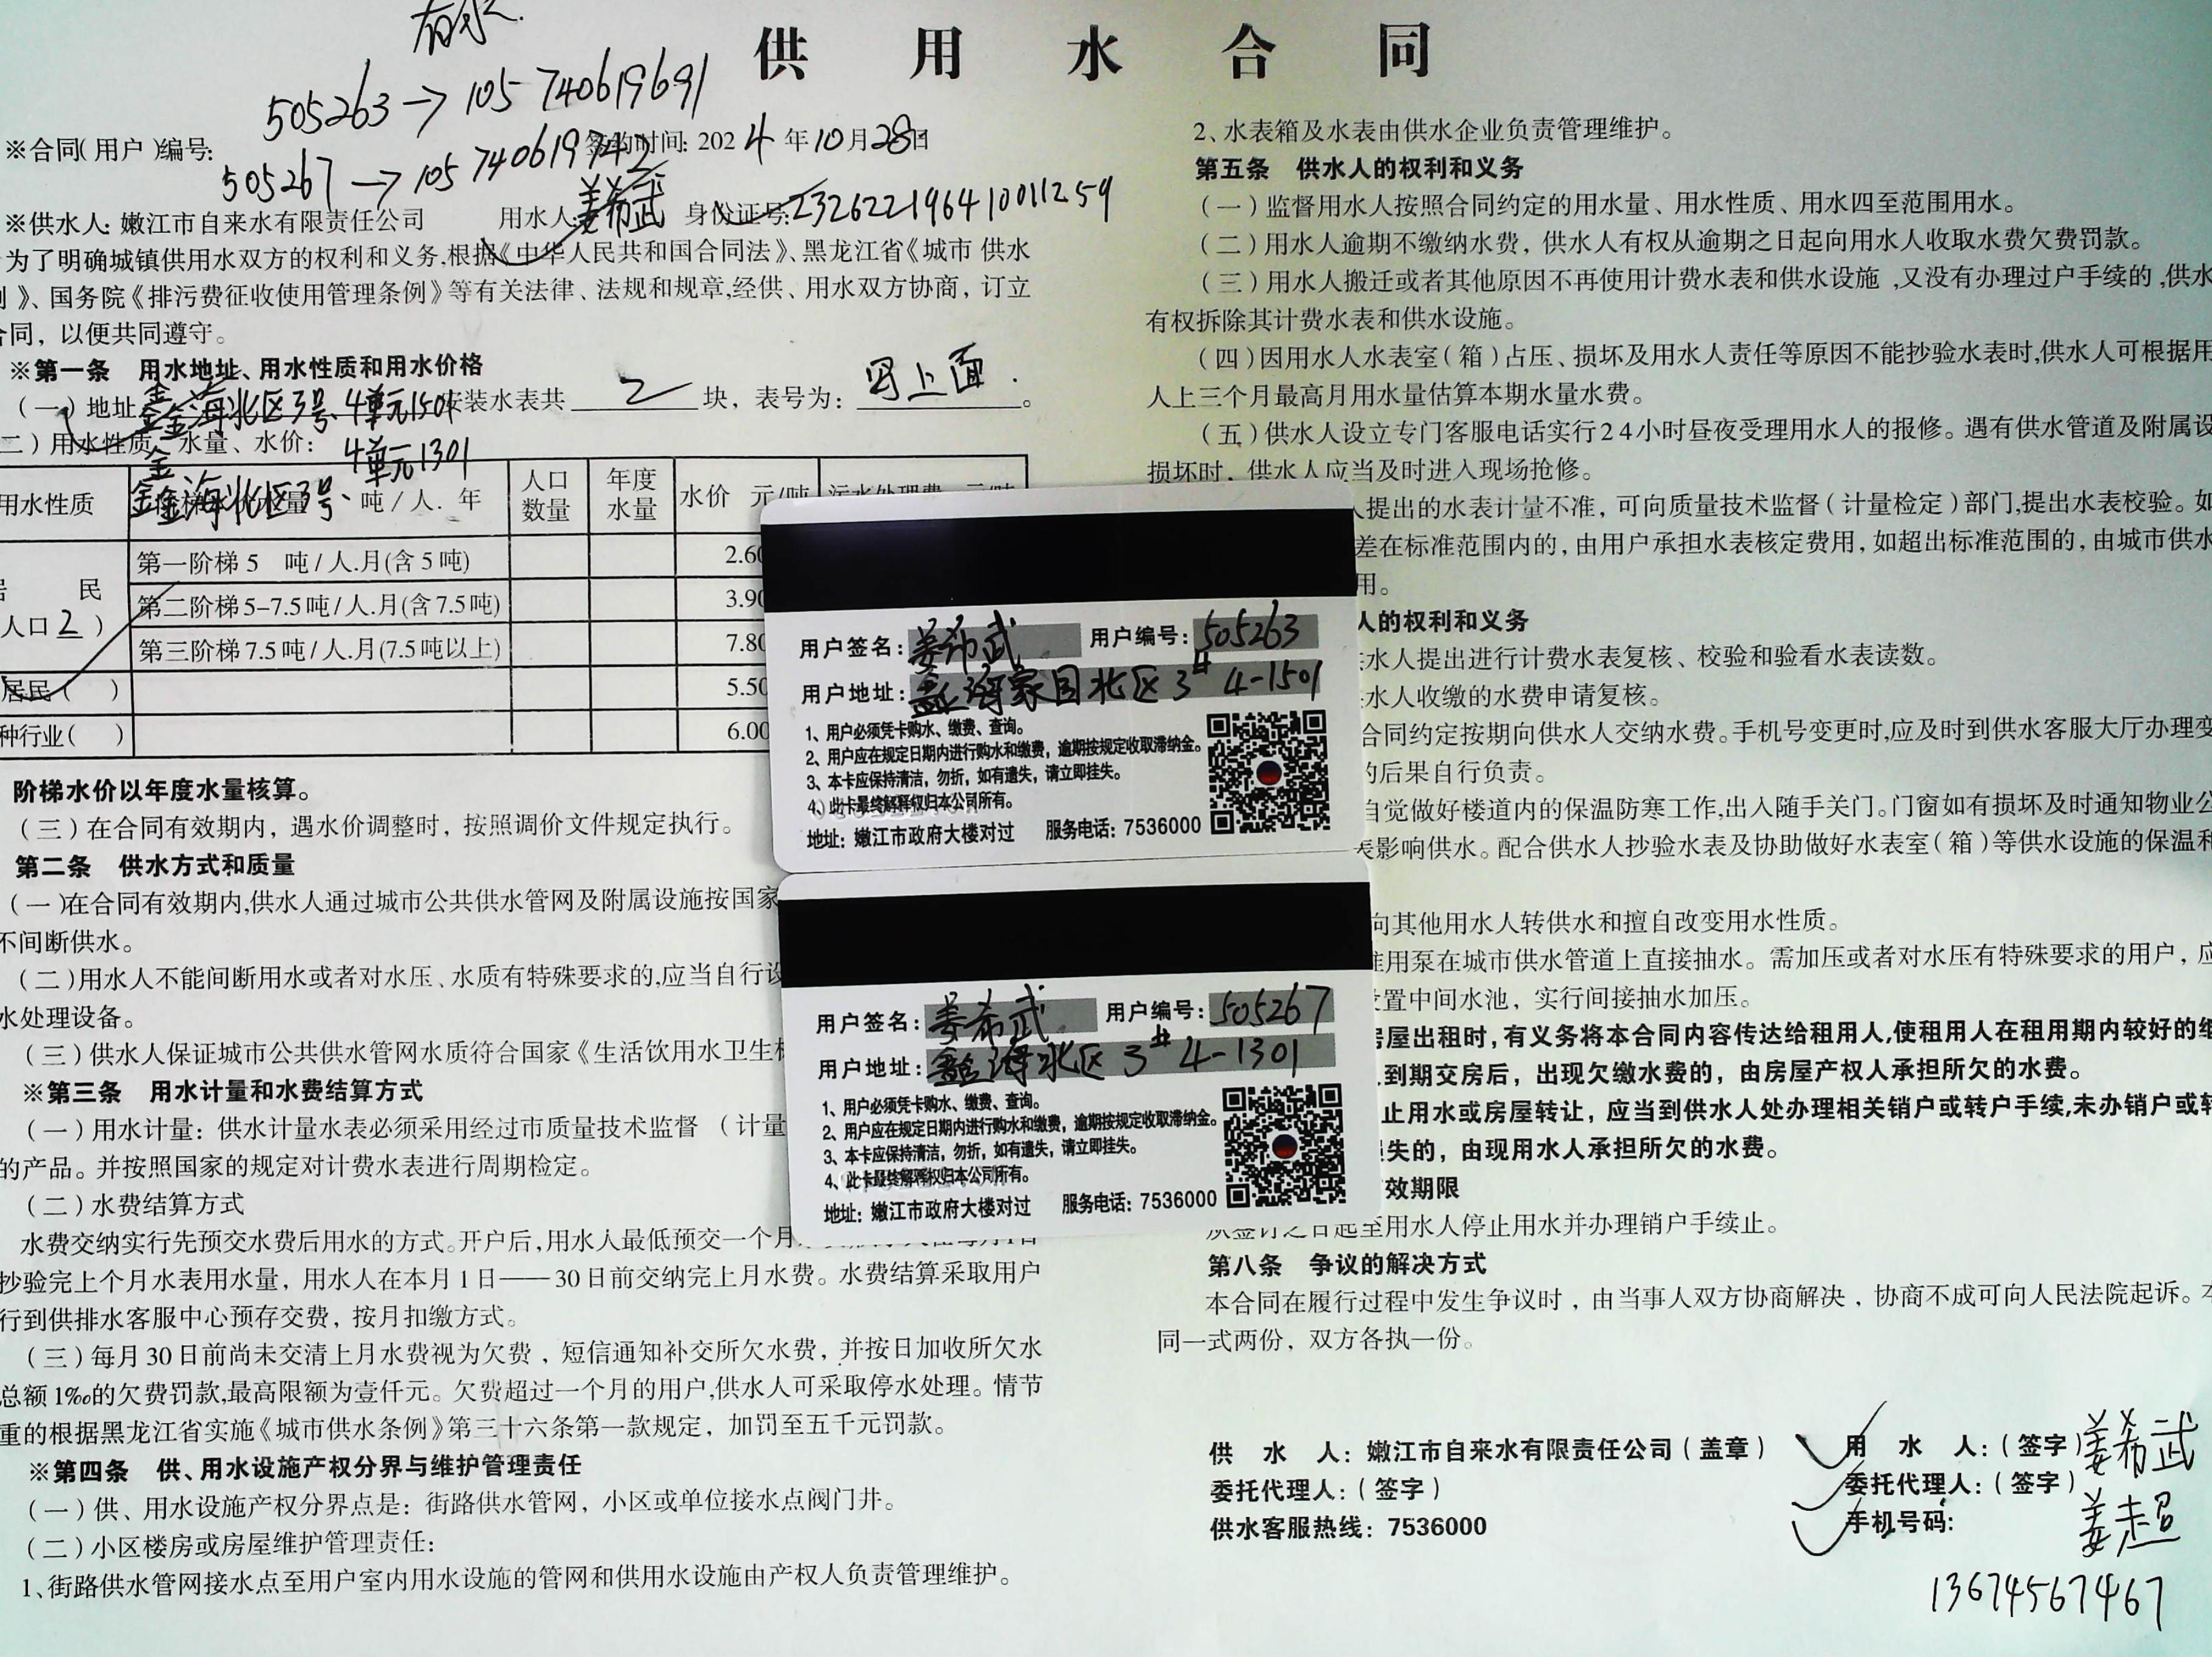 有水.
供用水合同
505263→105740619691
※合同(用户)编号:
签约时间: 2024年10月28日
505267→105740619742
※供水人: 嫩江市自来水有限责任公司 用水人: 姜希武 身份证号: 232622196410011259
为了明确城镇供用水双方的权利和义务,根据《中华人民共和国合同法》、黑龙江省《城市 供水
》、国务院《排污费征收使用管理条例》等有关法律、法规和规章,经供、用水双方协商，订立
合同，以便共同遵守。
※第一条 用水地址、用水性质和用水价格
(一)地址 鑫海北区3号、4单元1501 安装水表共 2 块，表号为: 写上面.。
二)用水性质、水量、水价:
4单元1301
鑫海北区3号、
用水性质 吨/人.年 人口数量 年度水量 水价 元/吨 污水处理费 元/吨
居民
人口2)
第一阶梯 5 吨/人.月(含5吨) 2.60
第二阶梯5-7.5吨/人.月(含7.5吨) 3.90
第三阶梯7.5吨/人.月(7.5吨以上) 7.80
居民( ) 5.50
种行业( ) 6.00
阶梯水价以年度水量核算。
(三)在合同有效期内，遇水价调整时，按照调价文件规定执行。
第二条 供水方式和质量
(一)在合同有效期内,供水人通过城市公共供水管网及附属设施按国家
不间断供水。
(二)用水人不能间断用水或者对水压、水质有特殊要求的,应当自行设
水处理设备。
(三)供水人保证城市公共供水管网水质符合国家《生活饮用水卫生标
※第三条 用水计量和水费结算方式
(一)用水计量: 供水计量水表必须采用经过市质量技术监督 (计量
的产品。并按照国家的规定对计费水表进行周期检定。
(二)水费结算方式
水费交纳实行先预交水费后用水的方式。开户后,用水人最低预交一个月
抄验完上个月水表用水量，用水人在本月1日——30日前交纳完上月水费。水费结算采取用户
行到供排水客服中心预存交费，按月扣缴方式。
(三)每月30日前尚未交清上月水费视为欠费，短信通知补交所欠水费，并按日加收所欠水
总额1‰的欠费罚款,最高限额为壹仟元。欠费超过一个月的用户,供水人可采取停水处理。情节
重的根据黑龙江省实施《城市供水条例》第三十六条第一款规定，加罚至五千元罚款。
※第四条 供、用水设施产权分界与维护管理责任
(一)供、用水设施产权分界点是: 街路供水管网，小区或单位接水点阀门井。
(二)小区楼房或房屋维护管理责任:
1、街路供水管网接水点至用户室内用水设施的管网和供用水设施由产权人负责管理维护。
2、水表箱及水表由供水企业负责管理维护。
第五条 供水人的权利和义务
(一)监督用水人按照合同约定的用水量、用水性质、用水四至范围用水。
(二)用水人逾期不缴纳水费，供水人有权从逾期之日起向用水人收取水费欠费罚款。
(三)用水人搬迁或者其他原因不再使用计费水表和供水设施,又没有办理过户手续的,供水
有权拆除其计费水表和供水设施。
(四)因用水人水表室(箱)占压、损坏及用水人责任等原因不能抄验水表时,供水人可根据用
人上三个月最高月用水量估算本期水量水费。
(五)供水人设立专门客服电话实行24小时昼夜受理用水人的报修。遇有供水管道及附属设
损坏时，供水人应当及时进入现场抢修。
人提出的水表计量不准，可向质量技术监督(计量检定)部门,提出水表校验。如
差在标准范围内的，由用户承担水表核定费用，如超出标准范围的，由城市供水
用。
人的权利和义务
水人提出进行计费水表复核、校验和验看水表读数。
水人收缴的水费申请复核。
合同约定按期向供水人交纳水费。手机号变更时,应及时到供水客服大厅办理变
的后果自行负责。
自觉做好楼道内的保温防寒工作,出入随手关门。门窗如有损坏及时通知物业公
表影响供水。配合供水人抄验水表及协助做好水表室(箱)等供水设施的保温和
向其他用水人转供水和擅自改变用水性质。
准用泵在城市供水管道上直接抽水。需加压或者对水压有特殊要求的用户，应
设置中间水池，实行间接抽水加压。
房屋出租时，有义务将本合同内容传达给租用人,使租用人在租用期内较好的继
到期交房后，出现欠缴水费的，由房屋产权人承担所欠的水费。
止用水或房屋转让，应当到供水人处办理相关销户或转户手续,未办销户或转
损失的，由现用水人承担所欠的水费。
有效期限
从签订之日起至用水人停止用水并办理销户手续止。
第八条 争议的解决方式
本合同在履行过程中发生争议时，由当事人双方协商解决，协商不成可向人民法院起诉。本
同一式两份，双方各执一份。
供 水 人: 嫩江市自来水有限责任公司(盖章)
委托代理人:(签字)
供水客服热线: 7536000
用 水 人:(签字) 姜希武
委托代理人:(签字) 姜超
手机号码:
13674567467
用户签名: 姜希武 用户编号: 505263
用户地址: 鑫海家园北区3# 4-1501
1、用户必须凭卡购水、缴费、查询。
2、用户应在规定日期内进行购水和缴费，逾期按规定收取滞纳金。
3、本卡应保持清洁，勿折，如有遗失，请立即挂失。
4、此卡最终解释权归本公司所有。
地址: 嫩江市政府大楼对过 服务电话: 7536000
用户签名: 姜希武 用户编号: 505267
用户地址: 鑫海北区3# 4-1301
1、用户必须凭卡购水、缴费、查询。
2、用户应在规定日期内进行购水和缴费，逾期按规定收取滞纳金。
3、本卡应保持清洁，勿折，如有遗失，请立即挂失。
4、此卡最终解释权归本公司所有。
地址: 嫩江市政府大楼对过 服务电话: 7536000